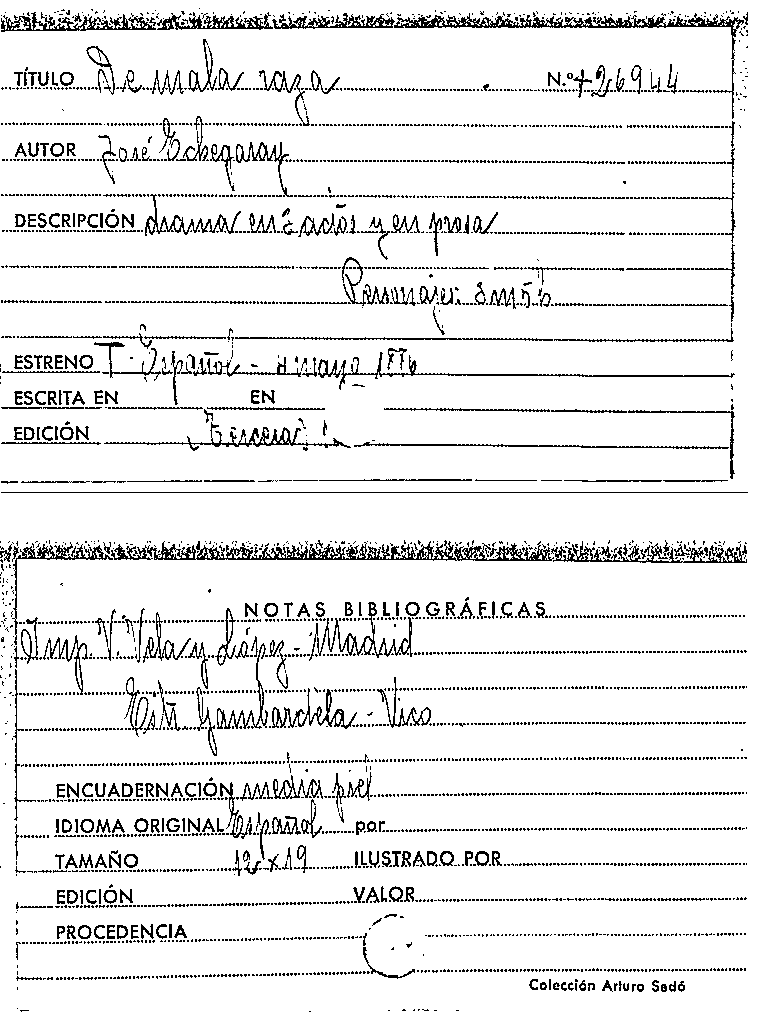 TÍTULO De mala raza N.º 426944
AUTOR José Echegaray
DESCRIPCIÓN drama en 3 actos y en prosa
Personajes: 8 m 5 h
ESTRENO T. Español - 4 mayo 1886
ESCRITA EN EN
EDICIÓN Tercera
NOTAS BIBLIOGRÁFICAS
Imp. V. Vela y López - Madrid
Gambardela - Vico
ENCUADERNACIÓN media piel
IDIOMA ORIGINAL Español por
TAMAÑO 12 x 19 ILUSTRADO POR
EDICIÓN VALOR
PROCEDENCIA
Colección Arturo Sedó